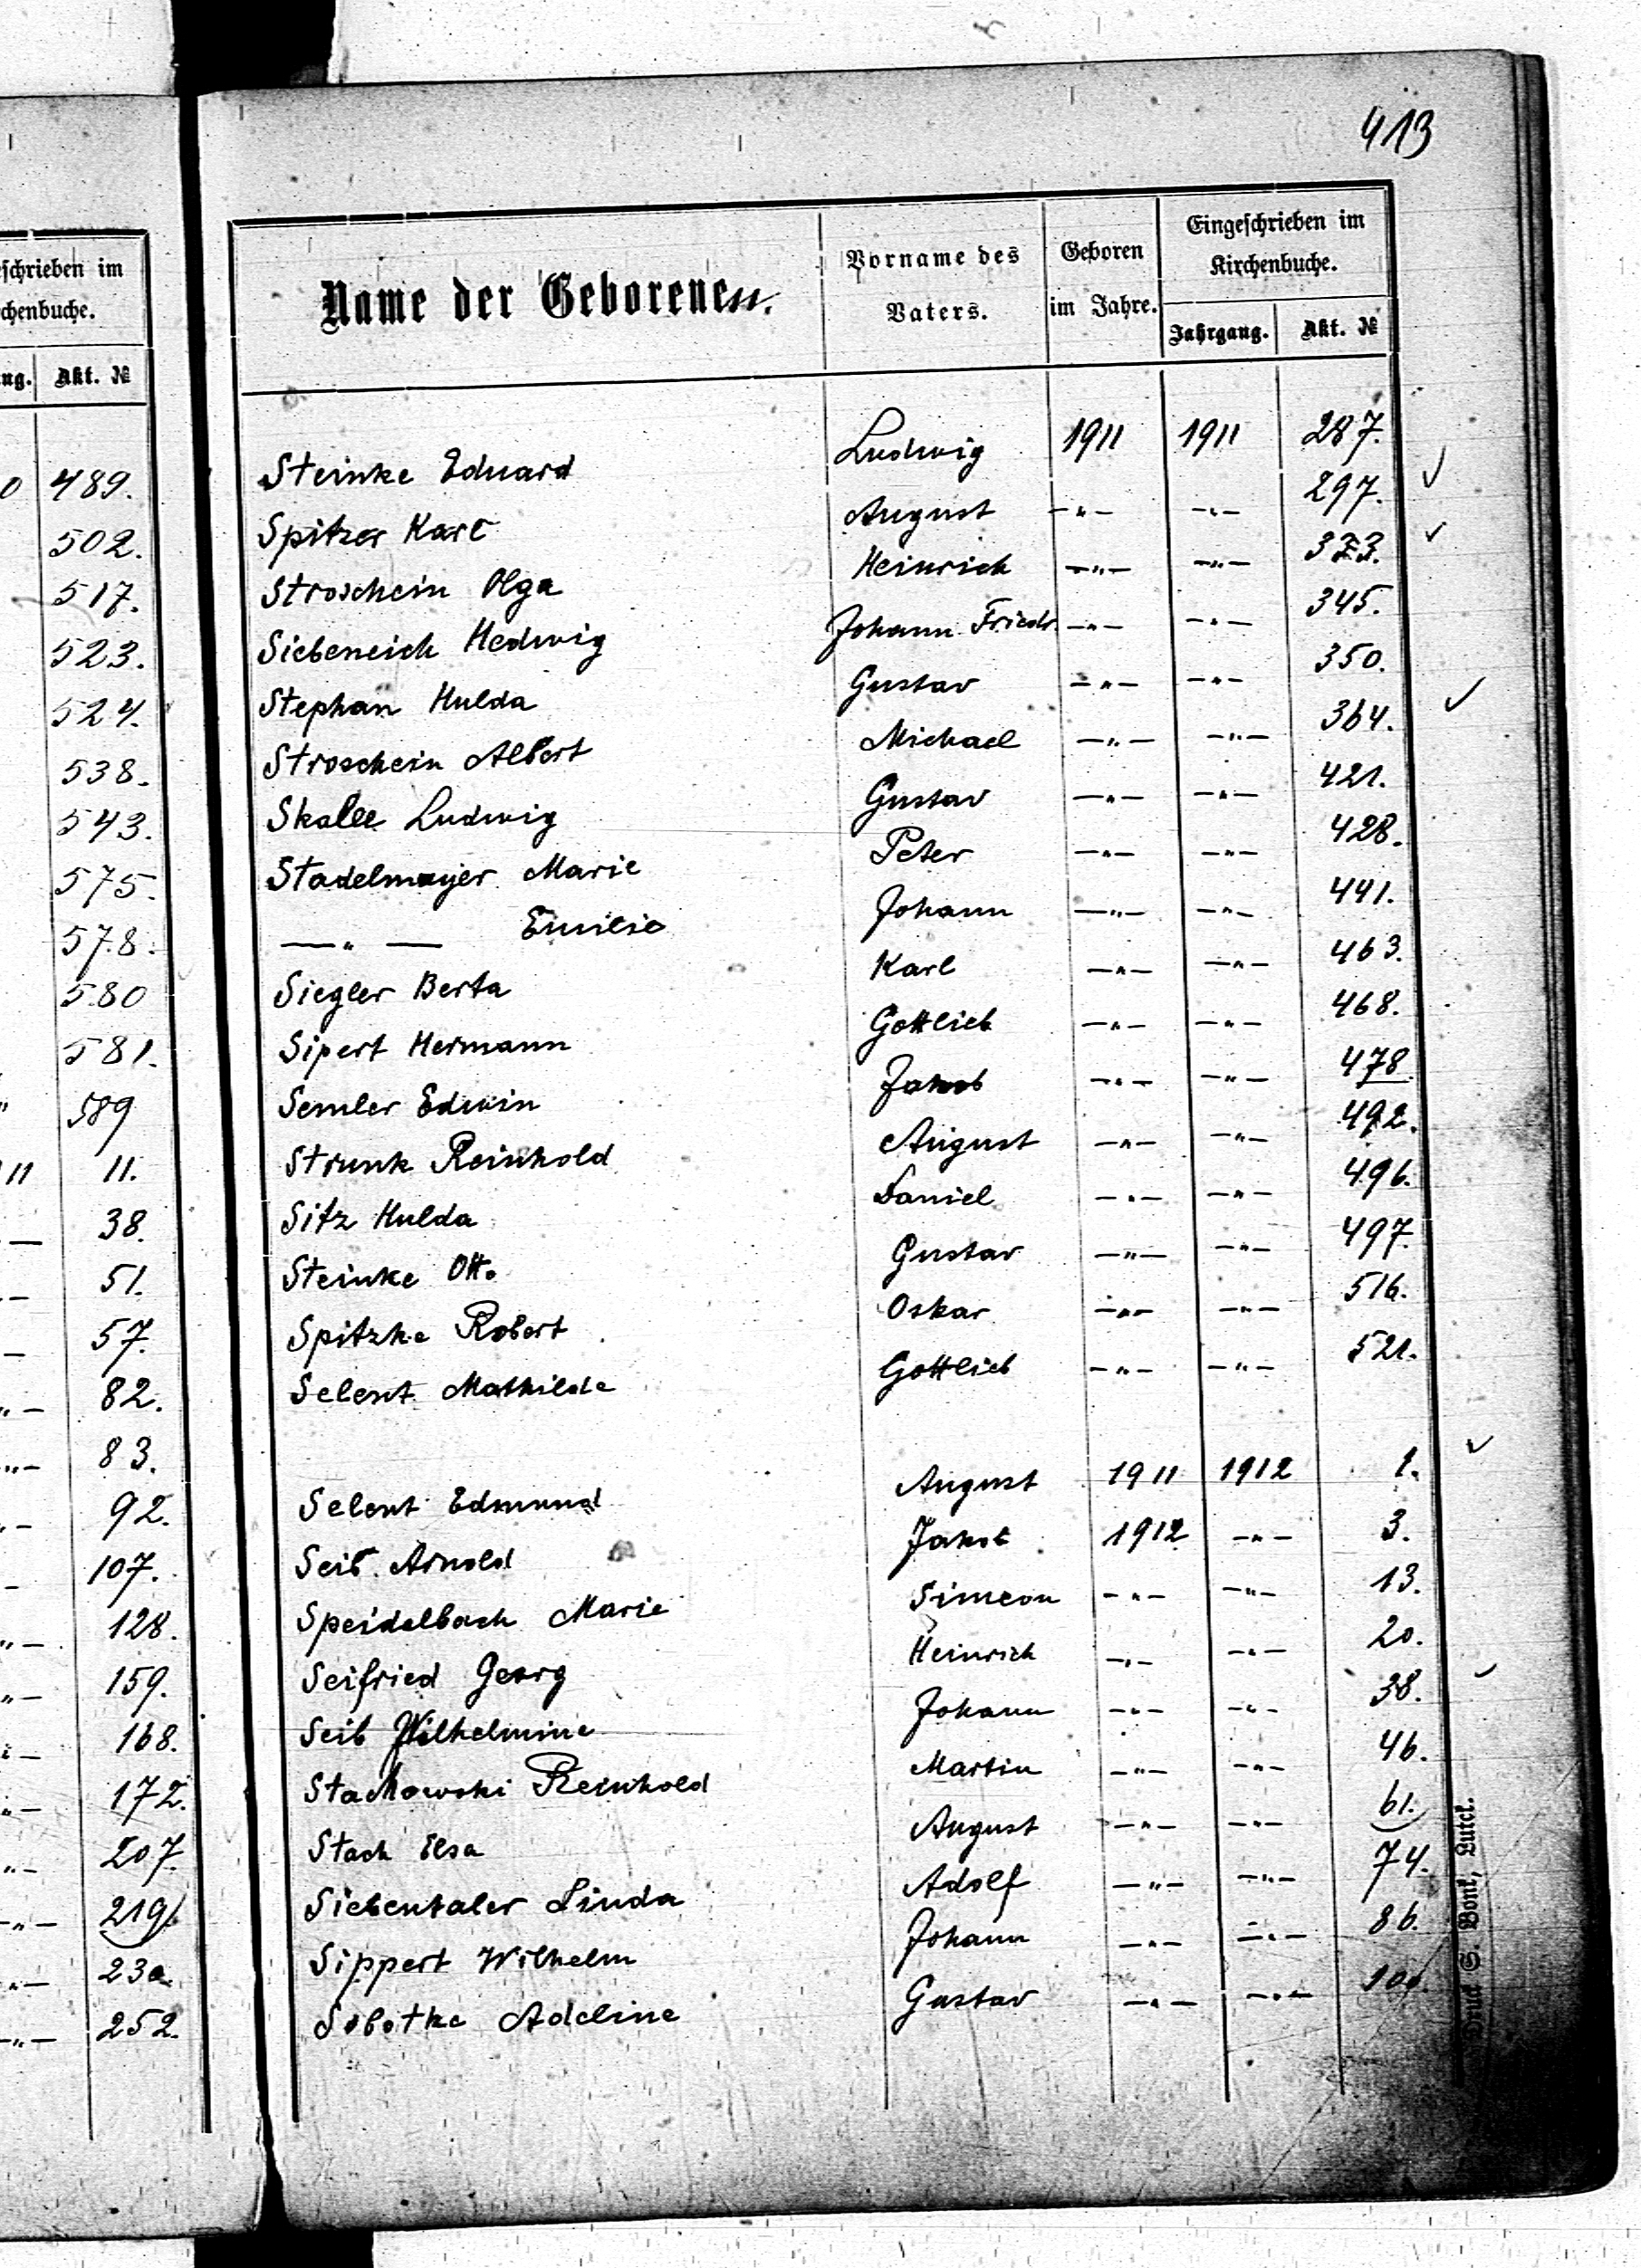 413
eschrieben im
chenbuche.
ng. Akt. №
0 489.
502.
517.
523.
524.
538.
543.
575.
578.
580
581.
" 589
11 11.
— 38.
— 51.
— 57.
"— 82.
"— 83.
"— 92.
— 107.
"— 128.
"— 159.
— 168.
"— 172.
"— 207.
—"— 219.
"— 230.
—"— 252.
Name der Geborenen. Vorname des Vaters. Geboren im Jahre. Eingeschrieben im Kirchenbuche.
Jahrgang. Akt. №
Steinke Eduard Ludwig 1911 1911 287.
Spitzer Karl August —"— —"— 297.
Stroschein Olga Heinrich —"— —"— 333.
Siebeneich Hedwig Johann Friedr. —"— —"— 345.
Stephan Hulda Gustav —"— —"— 350.
Stroschein Albert Michael —"— —"— 364.
Skalle Ludwig Gustav —"— —"— 421.
Stadelmayer Marie Peter —"— —"— 428.
—"— Emilie Johann —"— —"— 441.
Siegler Berta Karl —"— —"— 463.
Sipert Hermann Gottlieb —"— —"— 468.
Semler Edwin Jakob —"— —"— 478.
Strunk Reinhold August —"— —"— 492.
Sitz Hulda Daniel —"— —"— 496.
Steinke Otto Gustav —"— —"— 497.
Spitzke Robert Oskar —"— —"— 516.
Selent Mathilde Gottlieb —"— —"— 521.
Selent Edmund August 1911 1912 1.
Seib Arnold Jakob 1912 —"— 3.
Speidelbach Marie Simeon —"— —"— 13.
Seifried Georg Heinrich —"— —"— 20.
Seib Wilhelmine Johann —"— —"— 38.
Stachowski Reinhold Martin —"— —"— 46.
Stach Elsa August —"— —"— 61.
Siebentaler Linda Adolf —"— —"— 74.
Sippert Wilhelm Johann —"— —"— 86.
Sobotke Adeline Gustav —"— —"—
Druck S. Bonk, Lutck.